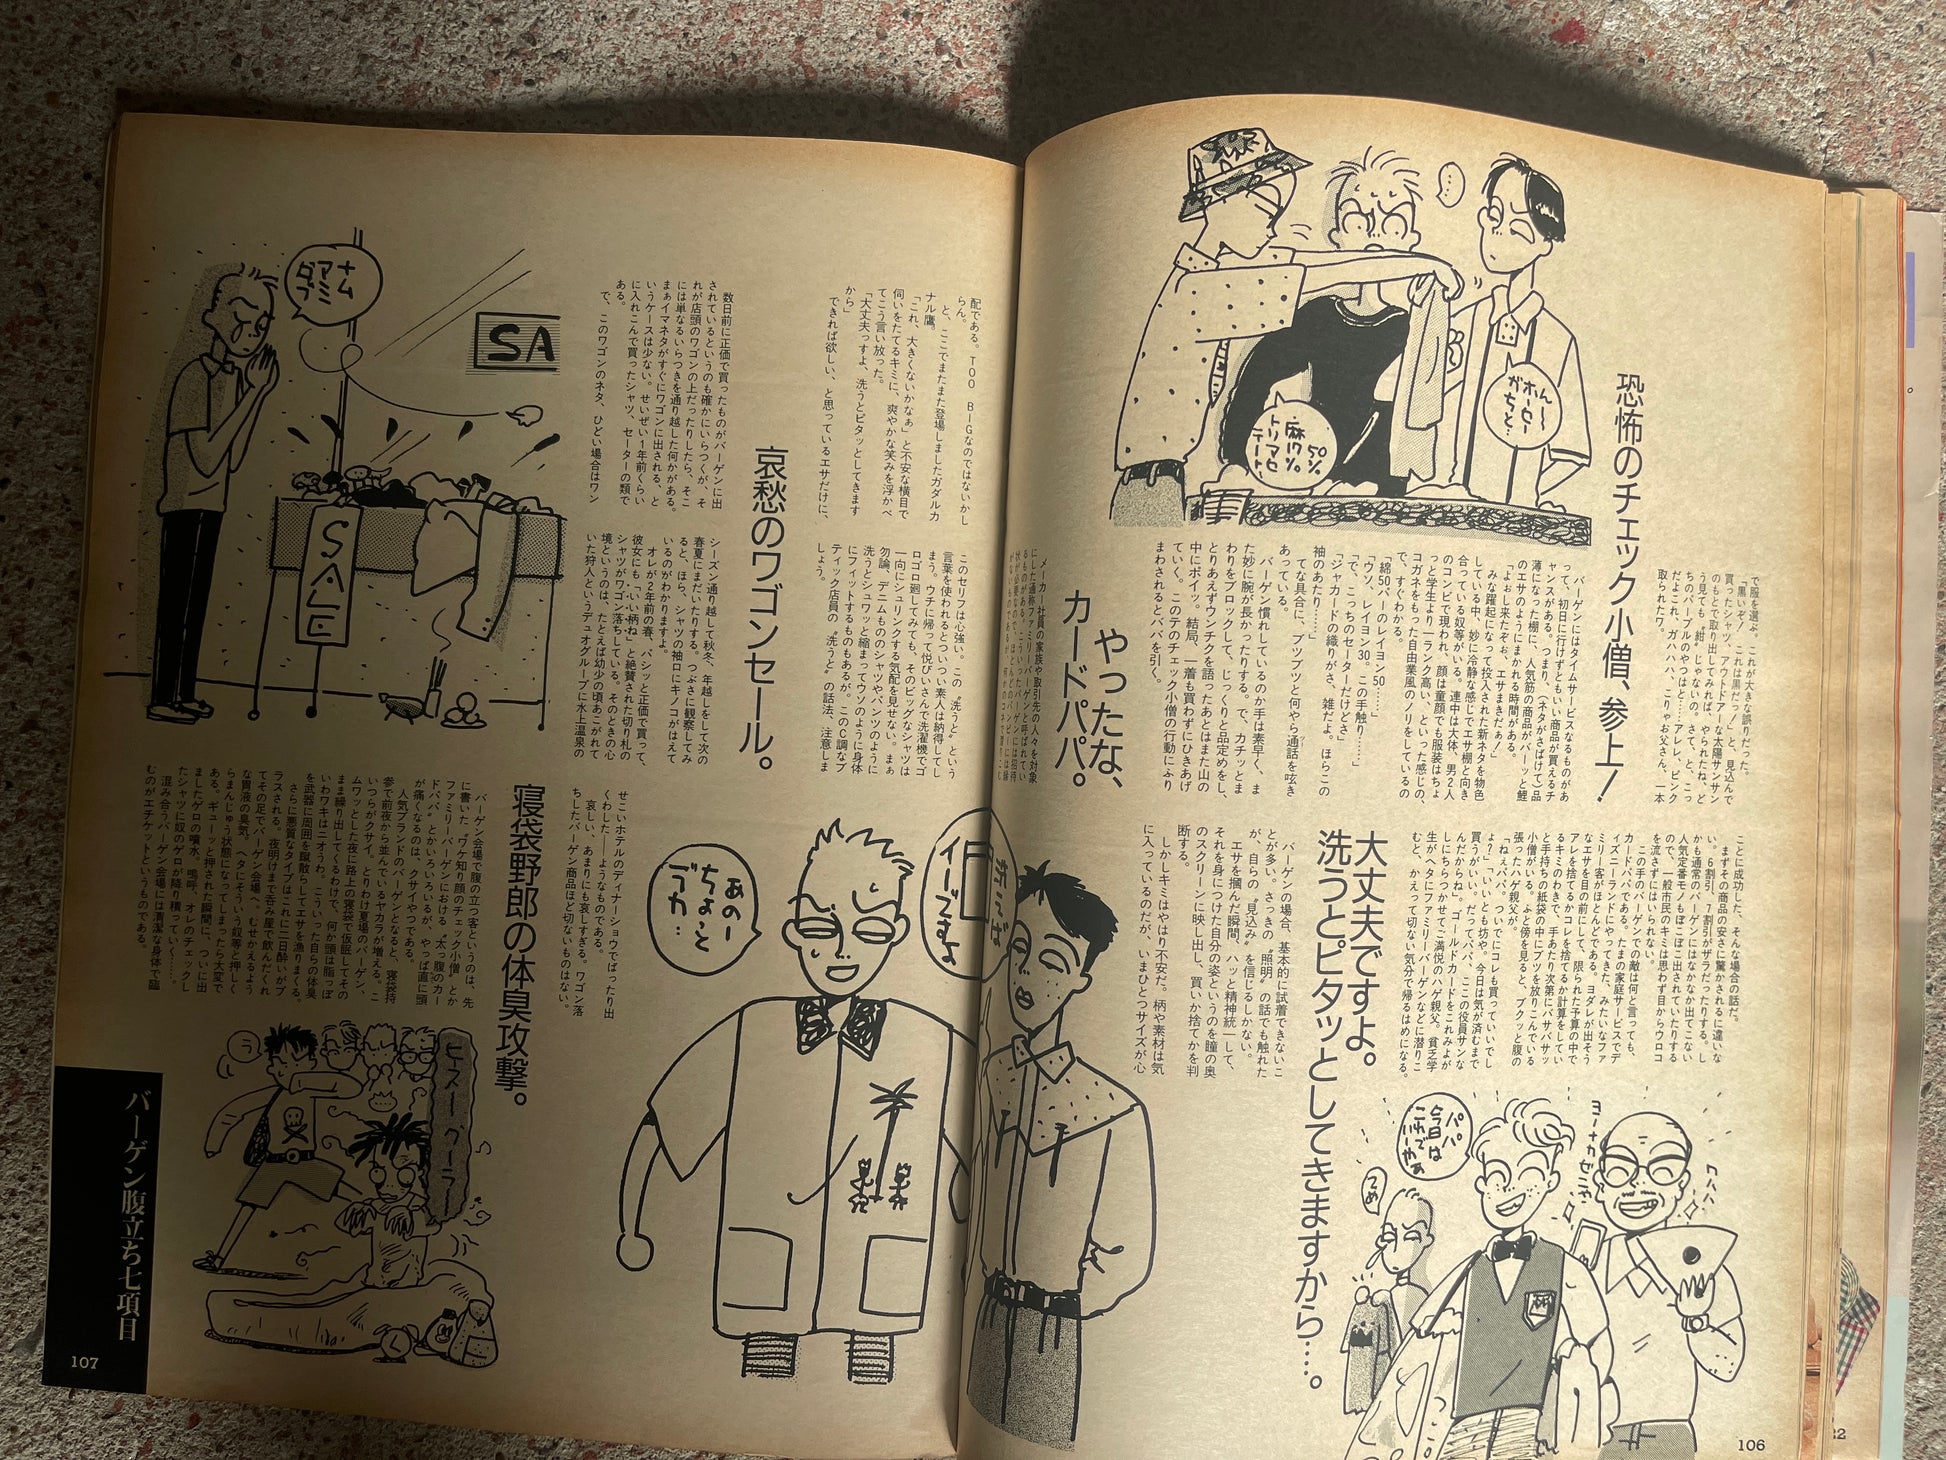 恐怖のチェック小僧、参上！
で服を選ぶ。これが大きな誤りだった。
「黒いぞ！　これは黒だっ！」と、見込んで
買ったシャツ、アウトドアーな太陽サンサン
のもとで取り出してみれば、やられたね、ど
う見ても〝紺〟じゃないの。さて、と、こっ
ちのパープルのやつはと……アレレ、ピンク
だよこれ、ガハハハ、こりゃお父さん、一本
取られたワ。
バーゲンにはタイムサービスなるものがあ
って、初日に行けずともいい商品が買えるチ
ャンスがある。つまり、（ネタがさばけて）品
薄になった棚に、人気筋の商品がバーッと鯉
のエサのようにまかれる時間がある。
「よぉし来たぞぉ、エサまきだぁ！」
みな躍起になって投入された新ネタを物色
している中、妙に冷静な感じでエサ棚と向き
合っている奴等がいる。連中は大体、男2人
のコンビで現われ、顔は童顔でも服装はちょ
っと学生より一ランク高い、といった感じの、
コガネをもった自由業風のノリをしているの
で、すぐわかる。
「綿50パーのレイヨン50……」
「ウソ、レイヨン30。この手触り……」
「で、こっちのセーターだけどさ」
「ジャカードの織りがさ、雑だよ。ほらこの
袖のあたり……」
あってな具合に、ブツブツと何やら通話を呟き
バーゲン慣れしているのか手は素早く、ま
た妙に腕が長かったりする。で、カチッとま
わりをブロックして、じっくりと品定めをし、
とりあえずウンチクを語ったあとはまた山の
中にポイッ。結局、一着も買わずにひきあげ
ていく。このテのチェック小僧の行動にふり
まわされるとババを引く。
50%
麻17%
トリアセ
テート…
ガホん〜
・セー
ちと…
…
やったな、
カードパパ。
メーカー社員の家族や取引先の人々を対象
にした通称ファミリーバーゲンと呼ばれてい
るものがある。こういったバーゲンには招待
ことに成功した、そんな場合の話だ。
まずその商品の安さに驚かされるに違いな
い。6割引、7割引がザラだったりする。し
かも通常のバーゲンにはなかなか出てこない
人気定番モノもぼこぼこ出されていたりする
ので、一般市民のキミは思わず目からウロコ
を流さずにはいられない。
この手のバーゲンでの敵は何と言っても、
カードパパである。たまの家庭サービスでデ
ィズニーランドにやってきた、みたいなファ
ミリー客がほとんどである。ヨダレが出そう
なエサを目の前にして、限られた予算の中で
アレを捨てるかコレを捨てるか計算をしてい
るキミのわきで、手あたり次第にバサバサッ
と手持ちの紙袋の中にブツを放りこんでいる
小僧がいる。ふと傍を見ると、プクッと腹の
張ったハゲ親父が。
「ねぇパパ、ついでにコレも買っていいでし
ょ？」「いいとも坊や、今日は気が済むまで
買うがいい。だってパパ、ここの役員サンな
んだからね」ゴールドカードをこれみよが
しにちらつかせてご満悦のハゲ親父。貧乏学
生がヘタにファミリーバーゲンなどに潜りこ
むと、かえって切ない気分で帰るはめになる。
パパ
今日は
これで
いーやぁ
てめ
ワハハハ
大丈夫ですよ。
洗うとピタッとしてきますから……。
バーゲンの場合、基本的に試着できないこ
とが多い。さっきの〝照明〟の話でも触れた
が、自らの〝見込み〟を信じるしかない。
エサを掴んだ瞬間、ハッと精神統一して、
それを身につけた自分の姿というのを瞳の奥
のスクリーンに映し出し、買いか捨てかを判
断する。
しかしキミはやはり不安だ。柄や素材は気
に入っているのだが、いまひとつサイズが心
106
配である。TOO　BIGなのではないかし
らん。
と、ここでまたまた登場しましたガダルカ
ナル鷹。
「これ、大きくないかなぁ」と不安な横目で
伺いをたてるキミに、爽やかな笑みを浮かべ
てこう言い放った。
「大丈夫っすよ、洗うとピタッとしてきます
から」
できれば欲しい、と思っているエサだけに、
このセリフは心強い。この〝洗うと〟という
言葉を使われるとついつい素人は納得してし
まう。ウチに帰って悦びいさんで洗濯機でゴ
ロゴロ廻してみても、そのビッグなシャツは
一向にシュリンクする気配を見せない。まぁ
勿論、デニムもののシャツやパンツのように
洗うとシュワッと縮まってウソのように身体
にフィットするものもあるが、このC調なブ
ティック店員の〝洗うと〟の話法、注意しま
しょう。
あのー
ちょっと
デカ…
哀愁のワゴンセール。
数日前に正価で買ったものがバーゲンに出
されているというのも確かにいらつくが、そ
れが店頭のワゴンの上だったりしたら、そこ
には単なるいらつきを通り越した何かがある。
まぁイマネタがすぐにワゴンに出される、と
いうケースは少ない。せいぜい1年前くらい
に入れこんで買ったシャツ、セーターの類で
ある。
で、このワゴンのネタ、ひどい場合はワン
シーズン通り越して秋冬、年越しをして次の
春夏にまだいたりする。つぶさに観察してみ
ると、ほら、シャツの袖口にキノコがはえて
いるのがわかりますよ。
オレが2年前の春、バシッと正価で買って、
彼女にも〝いい柄ね〟と絶賛された切り札の
シャツがワゴン落ちしている。そのときの心
境というのは、たとえば幼少の頃あこがれて
いた狩人というデュオグループに水上温泉の
せこいホテルのディナーショウでばったり出
くわした――ようなものである。
哀しい、あまりにも哀しすぎる。ワゴン落
ちしたバーゲン商品ほど切ないものはない。
ナム
アミ
ダブ
SA
SALE
寝袋野郎の体臭攻撃。
バーゲン会場で腹の立つ客というのは、先
に書いた〝ワケ知り顔のチェック小僧〟とか
ファミリーバーゲンにおける〝太っ腹のカー
ドパパ〟とかいろいろいるが、やっぱ直に頭
が痛くなるのは、クサイやつである。
人気ブランドのバーゲンとなると、寝袋持
参で前夜から並んでいるヤカラが増える。こ
いつらがクサイ。とりわけ夏場のバーゲン、
ムワッとした夜に路上の寝袋で仮眠してその
まま繰り出してくるわけで、何か頭は脂っぽ
いわワキはニオうわ。こういった自らの体臭
を武器に周囲を蹴散らしてエサを漁りまくる。
さらに悪質なタイプはこれに二日酔いがプ
ラスされる。夜明けまで呑み屋で飲んだくれ
てその足でバーゲン会場へ。むせかえるよう
な胃液の臭気。ヘタにそういう奴等と押しく
らまんじゅう状態になってしまったら大変で
ある。ギューッと押された瞬間に、ついに出
ましたゲロの噴水。嗚呼、オレのチェックし
たシャツに奴のゲロが降り積っていく……。
混み合うバーゲン会場には清潔な身体で臨
むのがエチケットというものである。
う
ヒスーグーラー
バーゲン腹立ち七項目
107